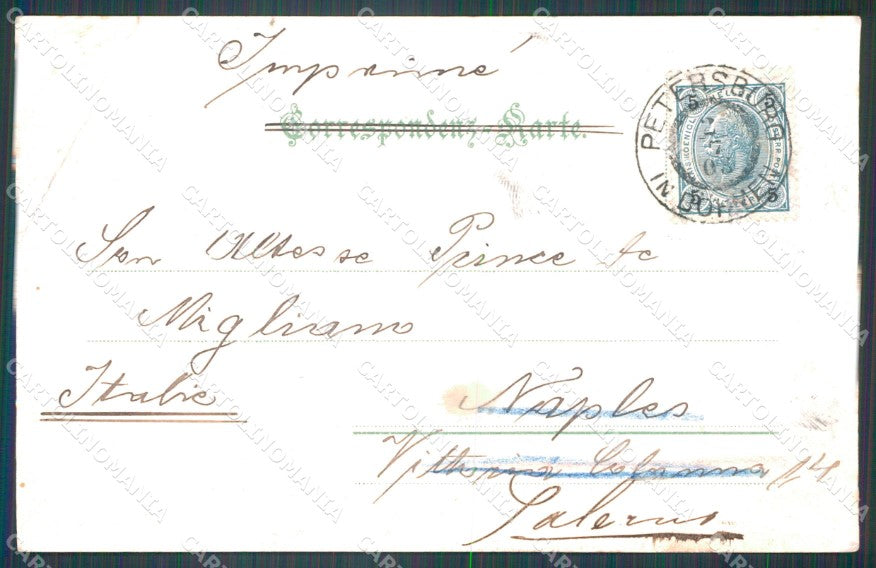 Imprimé
Correspondenz-Karte.
PETERSBURG
IN BÖHMEN
5 5
5 5
Son Altesse Prince de
Migliano
Italie
Naples
Vittoria Colonna 14
Salerno
CARTOLINOMANIA